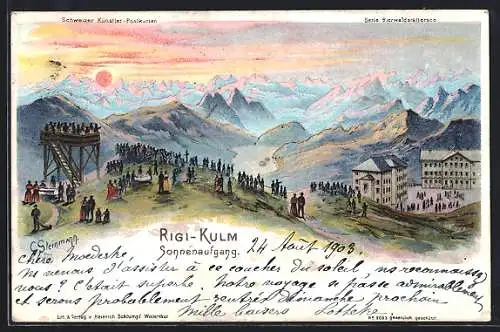 Schweizer Künstler-Postkarten
Serie Vierwaldstättersee
C. Steinmann
RIGI-KULM
Sonnenaufgang.
24 Août 1903.
Chère
Je venais d'assister à ce coucher du soleil, ns reconnaissez
vous? C'était superbe. Notre voyage se passe admirablement
et serons probablement rentrés dimanche prochain
Mille baisers
Lith. & Verlag v. Heinrich Schlumpf Winterthur
Nº 6093 gesetzlich geschützt